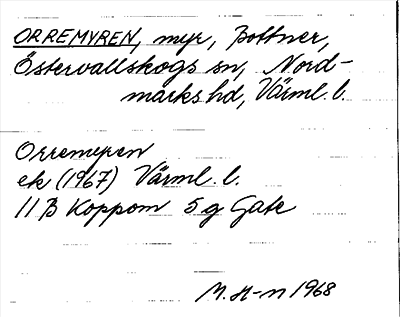 ORREMYREN, myr, Bottner,
Östervallskogs sn, Nord-
marks hd, Värml. l.
Orremyren
ek (1967) Värml. l.
11 B Koppom 5 g Gate
M. H-n 1968